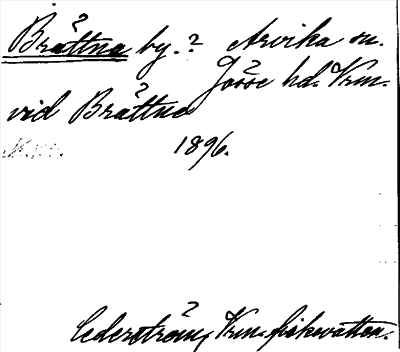 Bråttna by.? Arvika sn.
Jösse hd. Vrm.
vid Bråttna
1896.
Cederström, Vrm. fiskvatten.